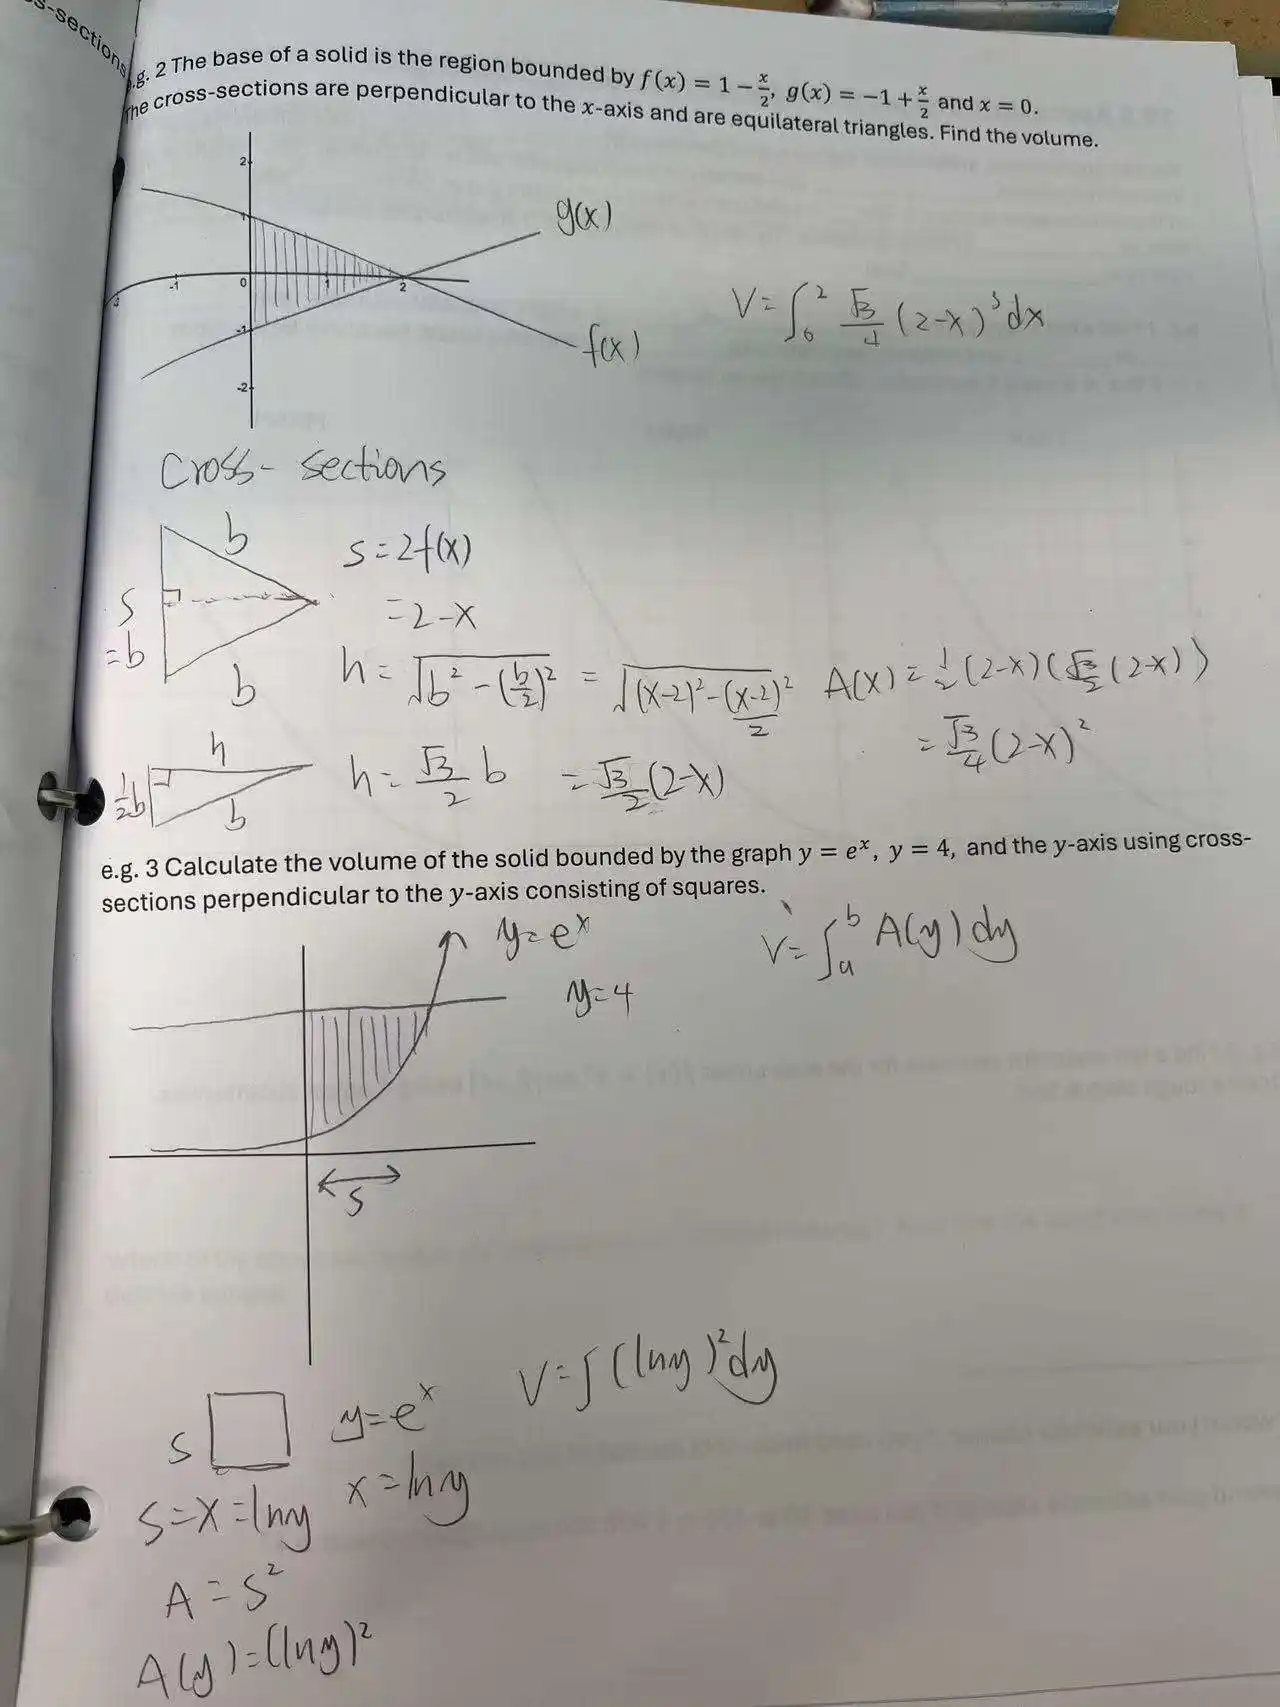 s-sections
e.g. 2 The base of a solid is the region bounded by f(x) = 1 − x/2, g(x) = −1 + x/2 and x = 0.
The cross-sections are perpendicular to the x-axis and are equilateral triangles. Find the volume.
2
1
g(x)
-1 0 1 2
-1
f(x)
-2
V = ∫₀² √3/4 (2-x)³ dx
Cross-sections
b
s = 2f(x)
s
= 2-x
= b
b
h = √(b² - (b/2)²) = √((x-2)² - (x-2)²/2)
A(x) = 1/2 (2-x)(√3/2 (2-x))
= √3/4 (2-x)²
h
1/2 b
b
h = √3/2 b = √3/2 (2-x)
e.g. 3 Calculate the volume of the solid bounded by the graph y = eˣ, y = 4, and the y-axis using cross-
sections perpendicular to the y-axis consisting of squares.
y = eˣ
V = ∫ₐᵇ A(y) dy
y = 4
s
V = ∫ (ln y)² dy
s
y = eˣ
x = ln y
s = x = ln y
A = s²
A(y) = (ln y)²